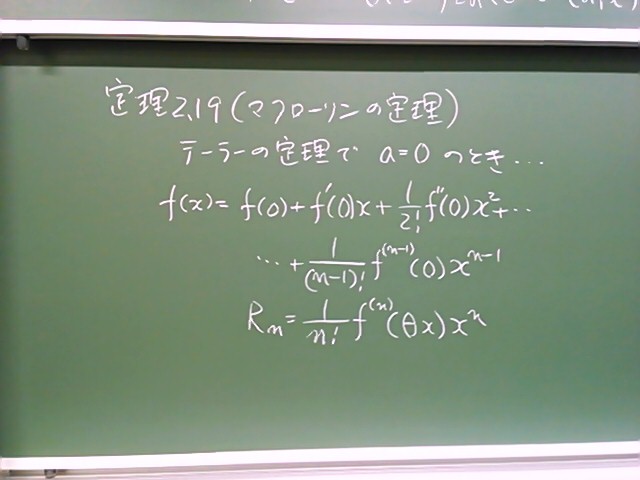 定理2.19(マクローリンの定理)
テーラーの定理で a=0 のとき...
f(x)= f(0)+f'(0)x+\frac{1}{2!}f''(0)x^2+...
...+\frac{1}{(n-1)!}f^{(n-1)}(0)x^{n-1}
R_n=\frac{1}{n!}f^{(n)}(θx)x^n